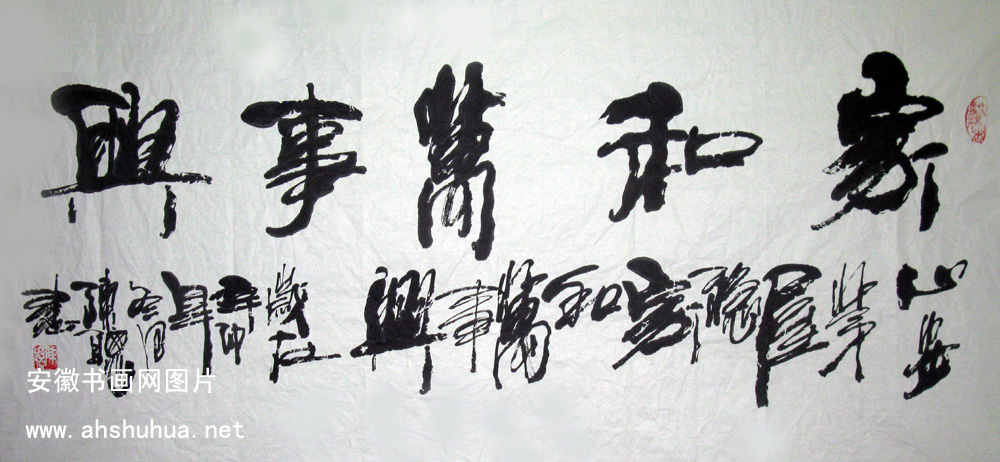 家和萬事興
心安茅屋穩家和萬事興歲在辛卯年冬月陳書
安徽书画网图片
www.ahshuhua.net